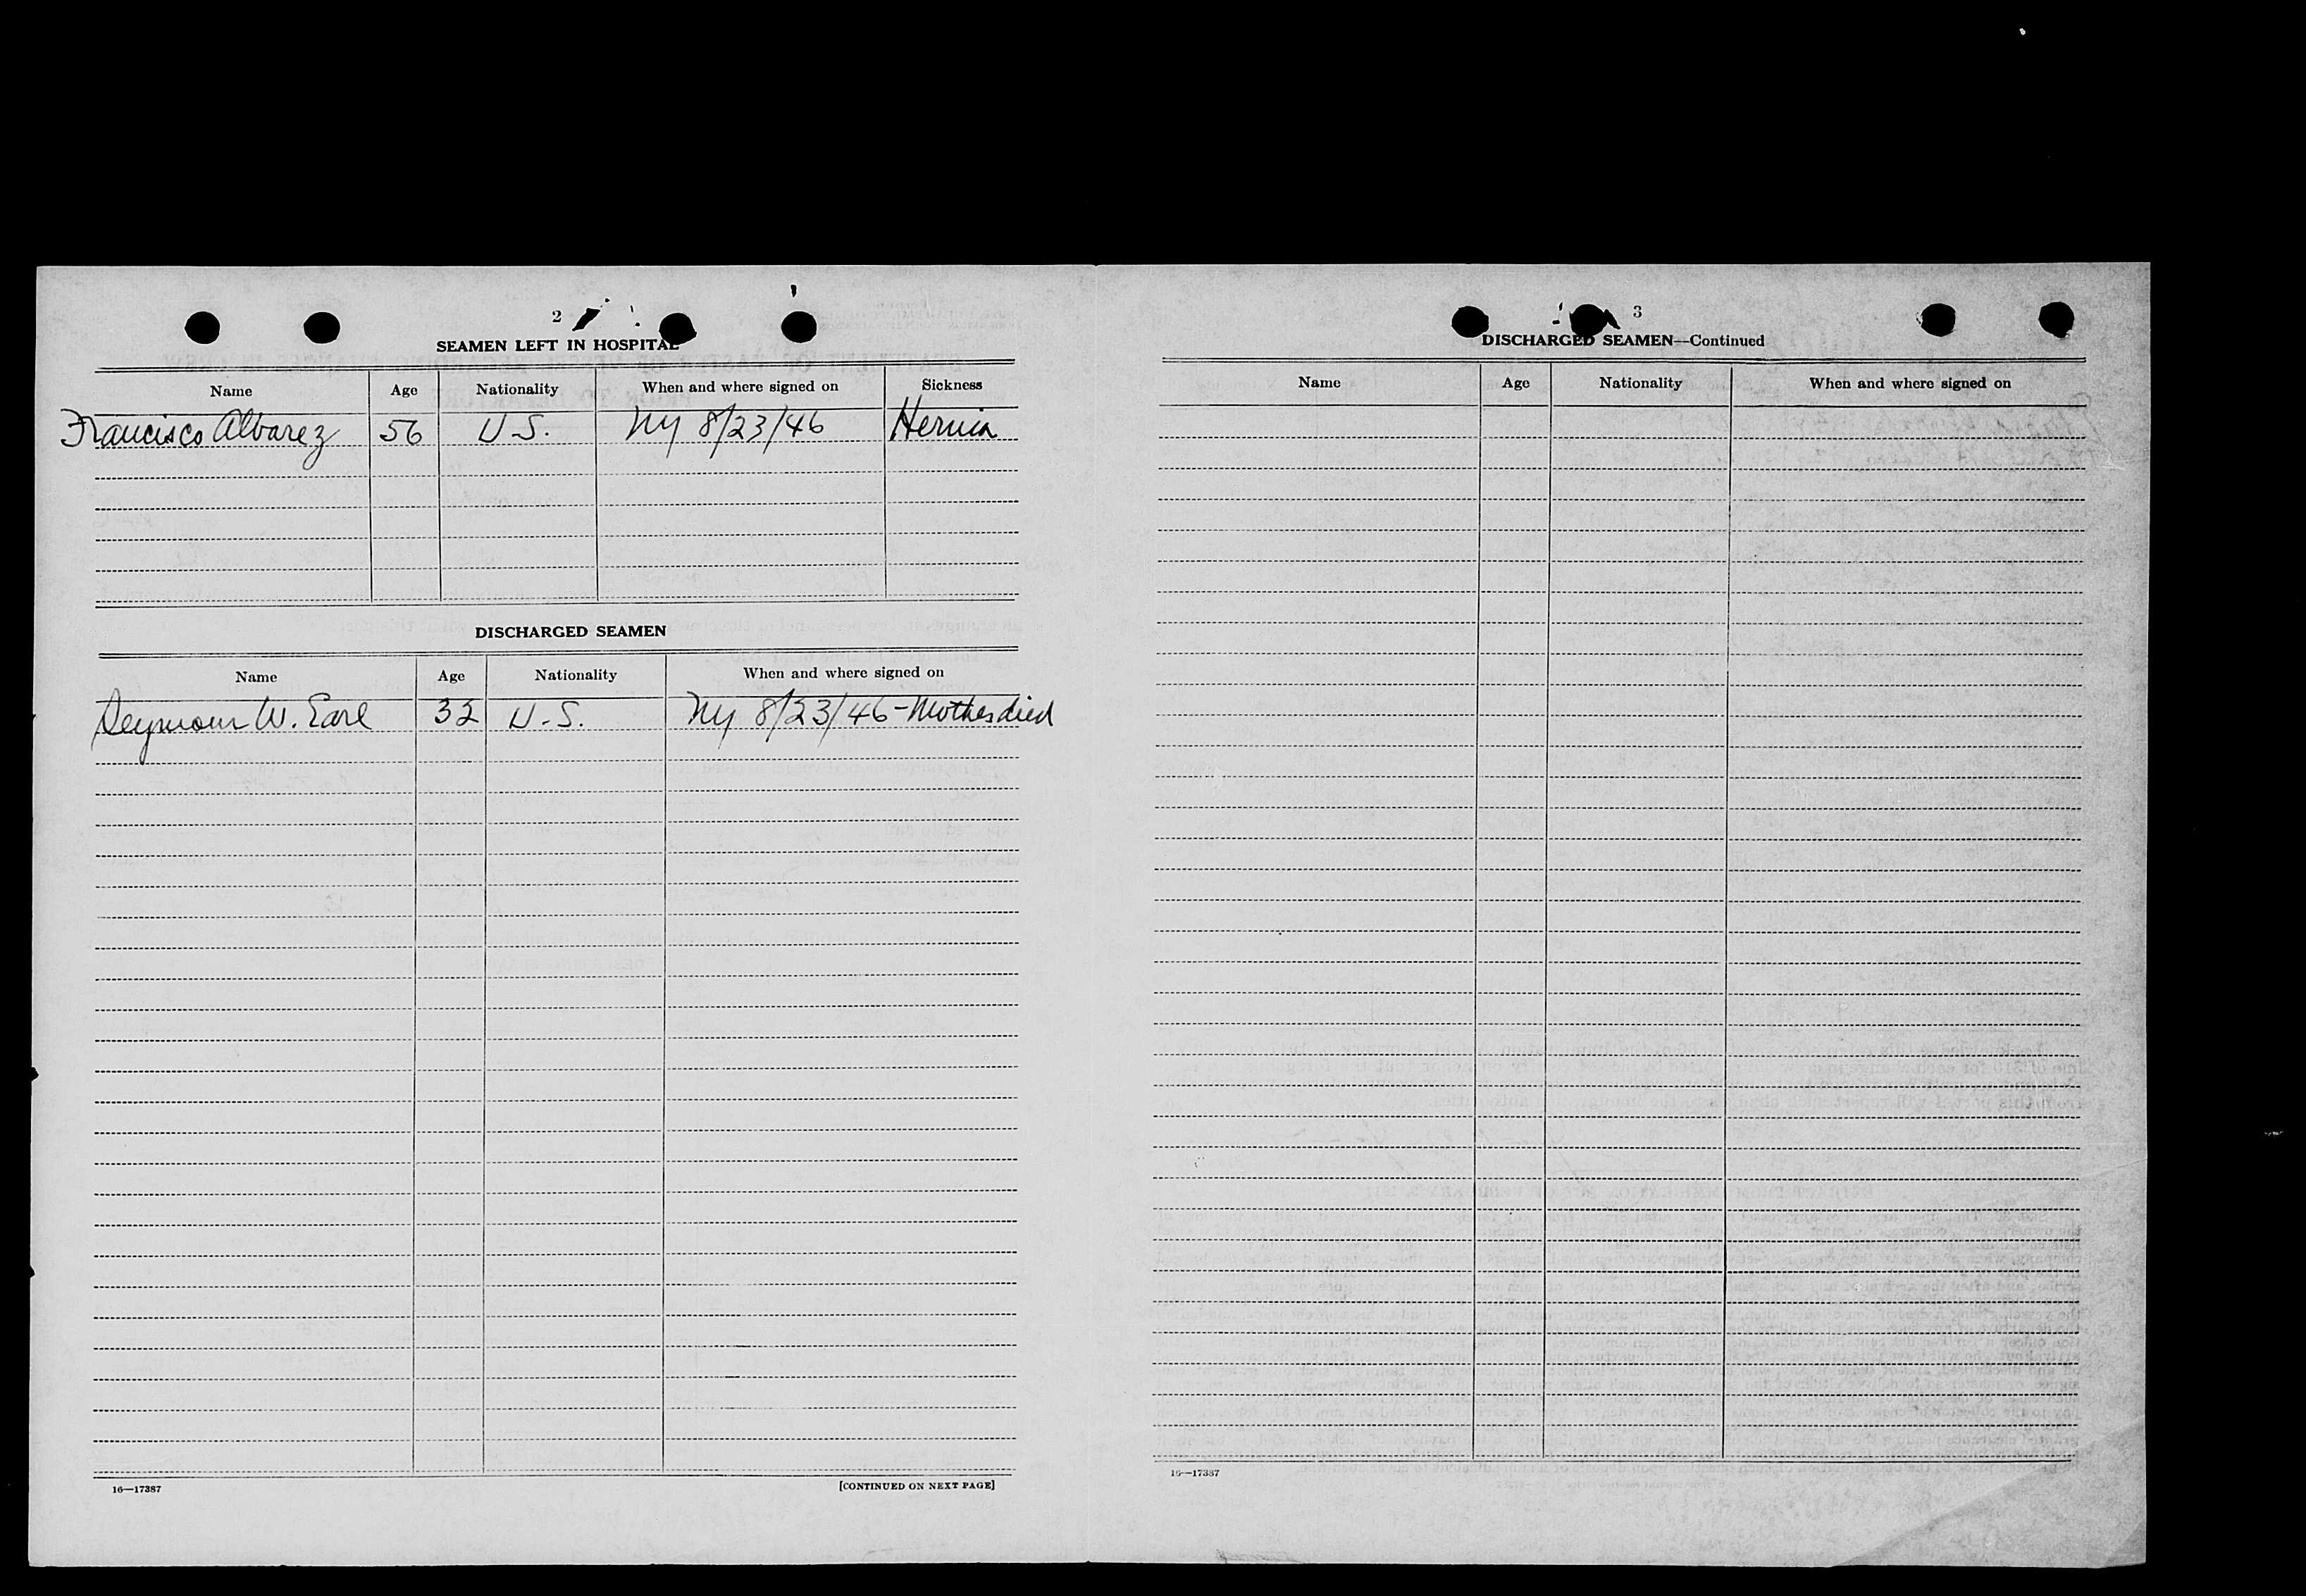 2
SEAMEN LEFT IN HOSPITAL
Name Age Nationality When and where signed on Sickness
Francisco Alvarez 56 U S. NY 8/23/46 Hernia
DISCHARGED SEAMEN
Name Age Nationality When and where signed on
Seymour W. Earl 32 U.S. NY 8/23/46 - Mother died
16—17387 [CONTINUED ON NEXT PAGE]
3
DISCHARGED SEAMEN—Continued
Name Age Nationality When and where signed on
16—17387